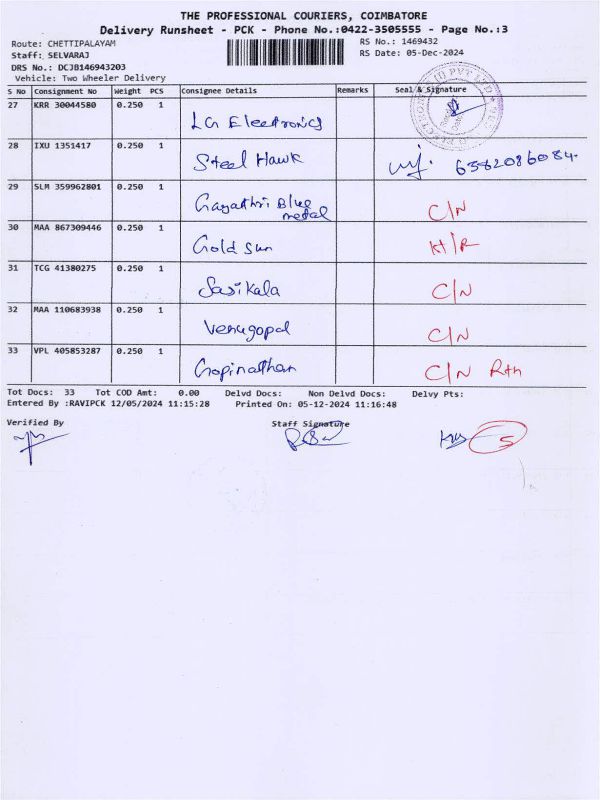 THE PROFESSIONAL COURIERS, COIMBATORE
Delivery Runsheet - PCK - Phone No.:0422-3505555 - Page No.:3
Route: CHETTIPALAYAM RS No.: 1469432
Staff: SELVARAJ RS Date: 05-Dec-2024
DRS No.: DCJB146943203
Vehicle: Two Wheeler Delivery
S No Consignment No Weight PCS Consignee Details Remarks Seal & Signature
27 KRR 30044580 0.250 1 LG Electronics
28 IXU 1351417 0.250 1 Steel Hawk 6382086084
29 SLM 359962801 0.250 1 Gayathri Blue metal C/N
30 MAA 867309446 0.250 1 Gold Sun H/R
31 TCG 41380275 0.250 1 Sasikala C/N
32 MAA 110683938 0.250 1 Venugopal C/N
33 VPL 405853287 0.250 1 Gopinathan C/N Rtn
Tot Docs: 33 Tot COD Amt: 0.00 Delvd Docs: Non Delvd Docs: Delvy Pts:
Entered By :RAVIPCK 12/05/2024 11:15:28 Printed On: 05-12-2024 11:16:48
Verified By Staff Signature
5